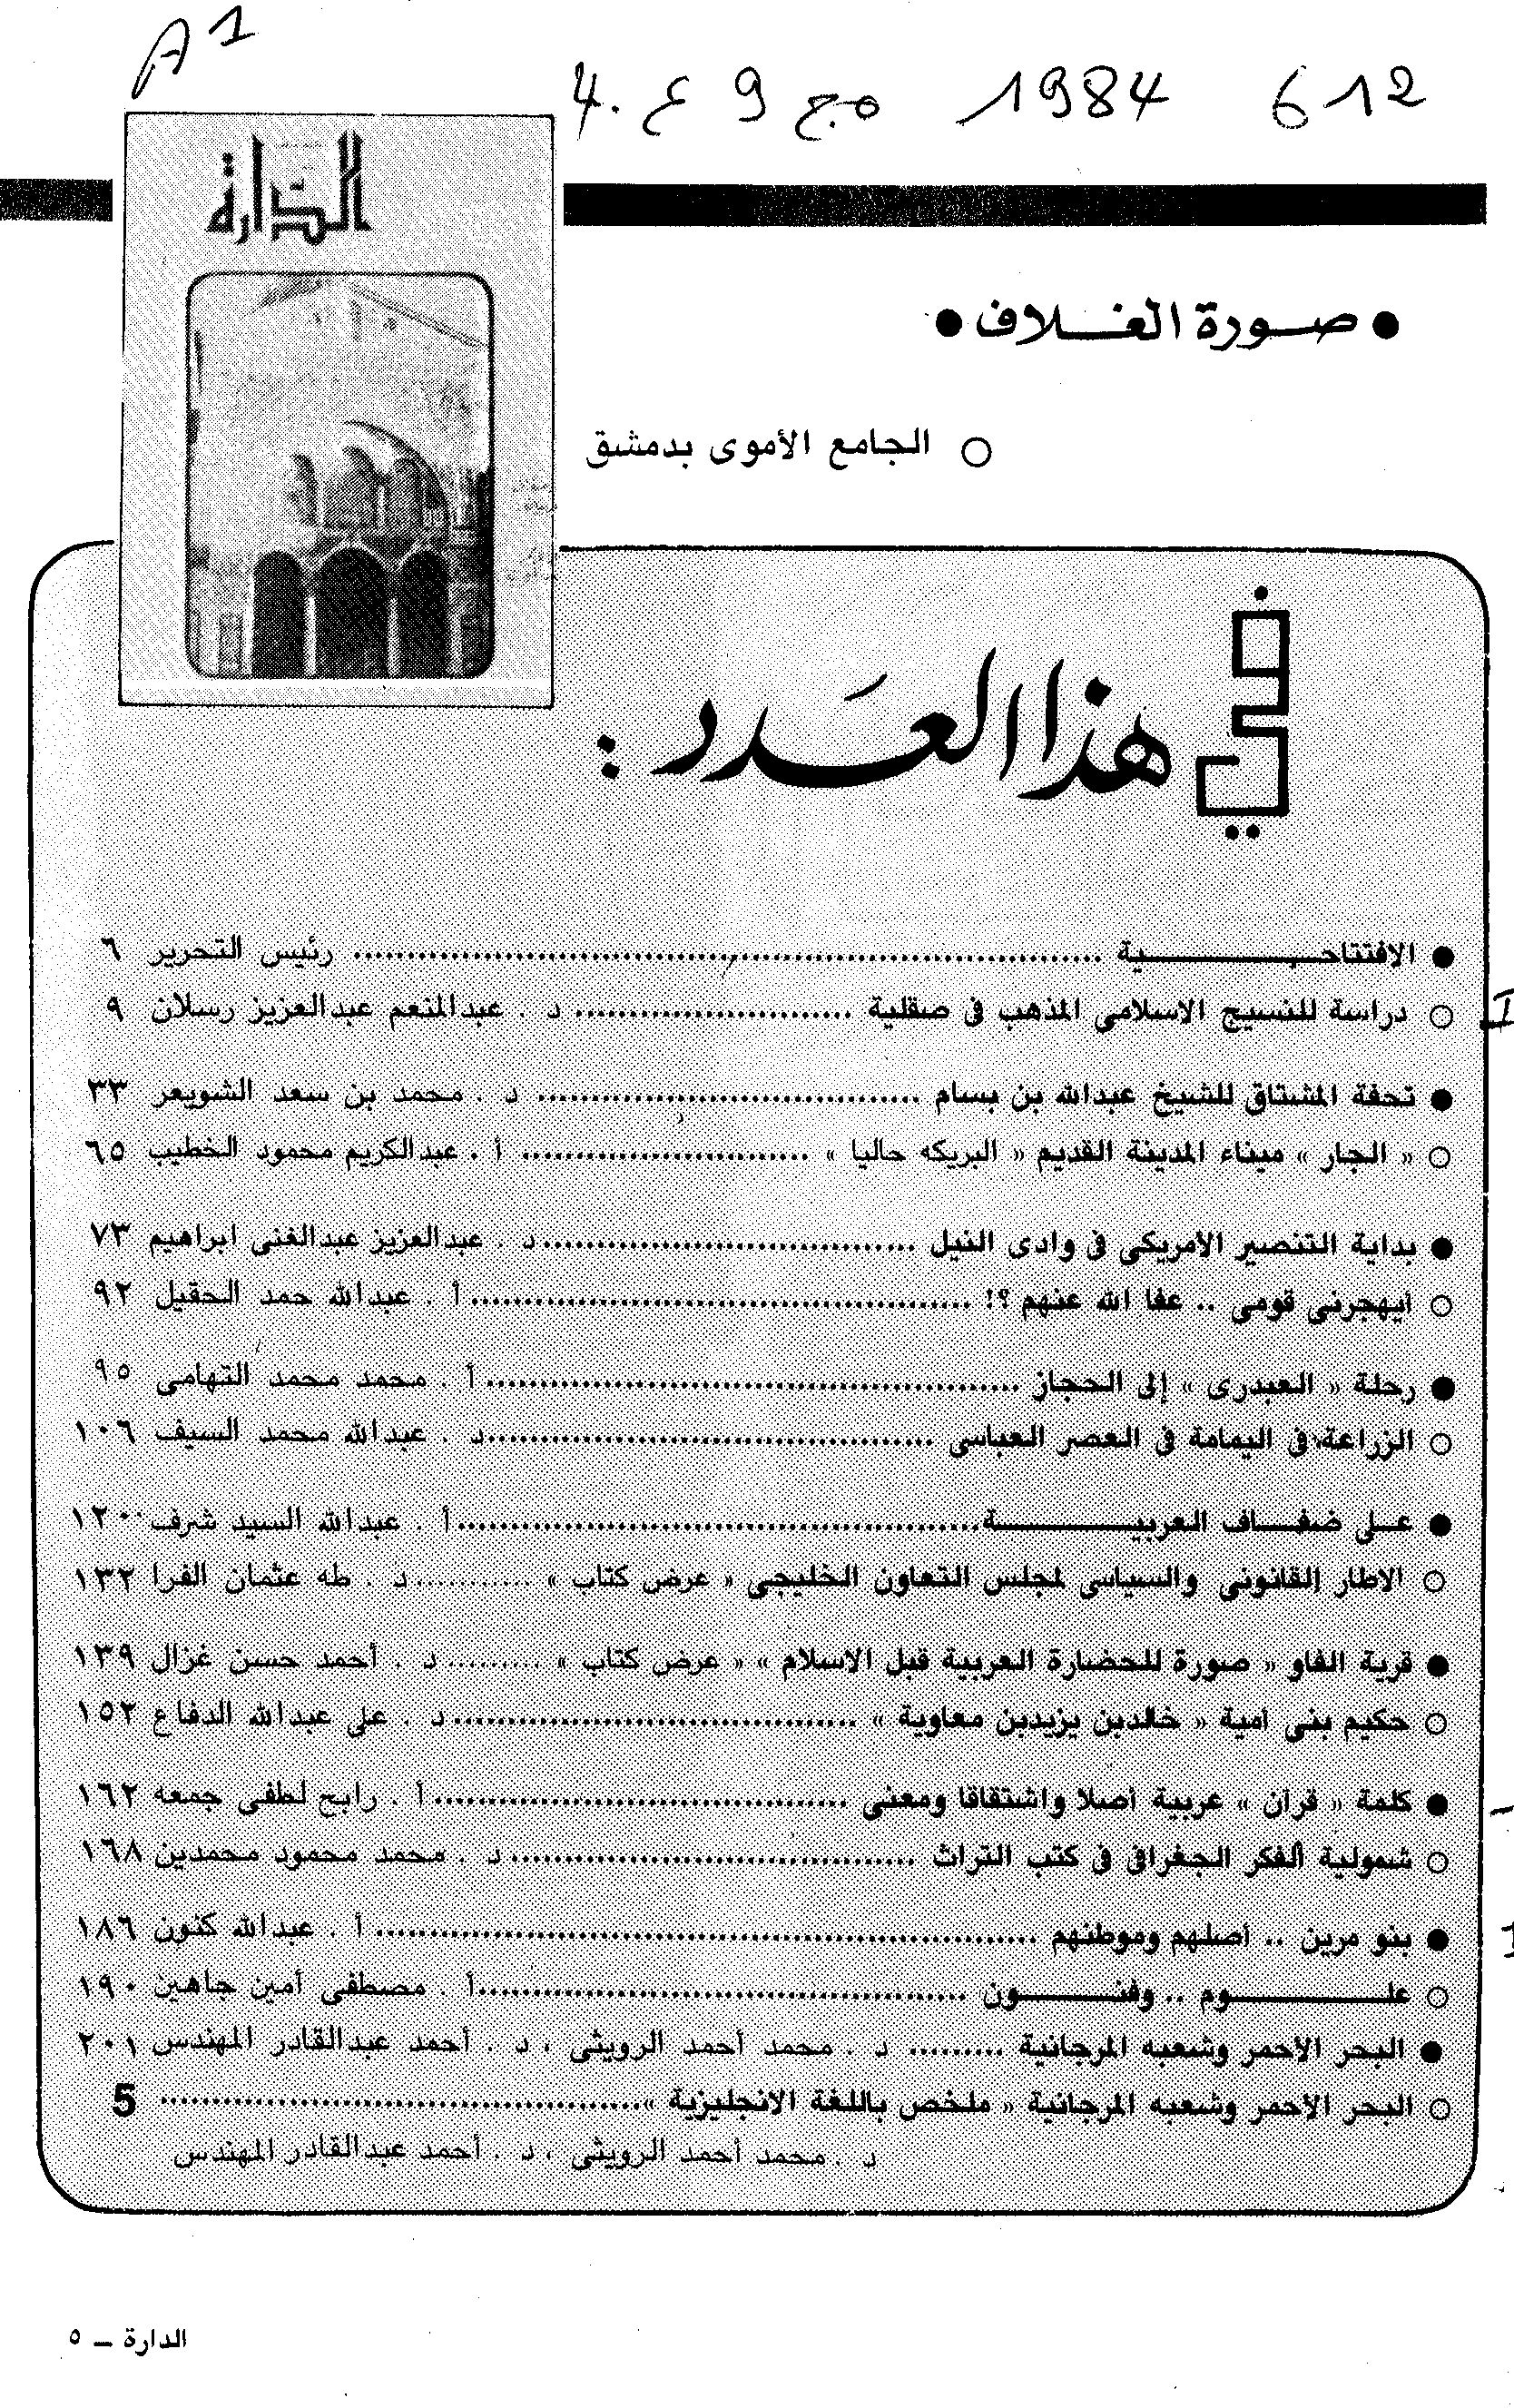 A1
612 1984 مج 9 ع 4.
الدارة
● صورة الغلاف ●
○ الجامع الأموى بدمشق
في هذا العدد :
● الافتتاحية ........ رئيس التحرير ٦
○ دراسة للنسيج الاسلامى المذهب فى صقلية ........ د . عبدالمنعم عبدالعزيز رسلان ٩
● تحفة المشتاق للشيخ عبدالله بن بسام ........ د . محمد بن سعد الشويعر ٣٣
○ « الجار » ميناء المدينة القديم « البريكه حاليا » ........ أ . عبدالكريم محمود الخطيب ٦٥
● بداية التنصير الأمريكى فى وادى النيل ........ د . عبدالعزيز عبدالغنى ابراهيم ٧٣
○ أيهجرنى قومى .. عفا الله عنهم ؟! ........ أ . عبدالله حمد الحقيل ٩٢
● رحلة « العبدرى » إلى الحجاز ........ أ . محمد محمد التهامى ٩٥
○ الزراعة فى اليمامة فى العصر العباسى ........ د . عبدالله محمد السيف ١٠٦
● على ضفاف العربية ........ أ . عبدالله السيد شرف ١٢٠
○ الاطار القانونى والسياسى لمجلس التعاون الخليجى « عرض كتاب » ........ د . طه عثمان الفرا ١٣٢
● قرية الفاو « صورة للحضارة العربية قبل الاسلام » « عرض كتاب » ........ د . أحمد حسن غزال ١٣٩
○ حكيم بنى أمية « خالدبن يزيدبن معاوية » ........ د . على عبدالله الدفاع ١٥٢
● كلمة « قرآن » عربية أصلا واشتقاقا ومعنى ........ أ . رابح لطفى جمعه ١٦٢
○ شمولية الفكر الجغرافى فى كتب التراث ........ د . محمد محمود محمدين ١٦٨
● بنو مرين .. أصلهم وموطنهم ........ أ . عبدالله كنون ١٨٦
○ علوم .. وفنون ........ أ . مصطفى أمين جاهين ١٩٠
● البحر الأحمر وشعبه المرجانية ........ د . محمد أحمد الرويثى ، د . أحمد عبدالقادر المهندس ٢٠١
○ البحر الأحمر وشعبه المرجانية « ملخص باللغة الانجليزية » ........ 5
د . محمد أحمد الرويثى ، د . أحمد عبدالقادر المهندس
الدارة – ٥